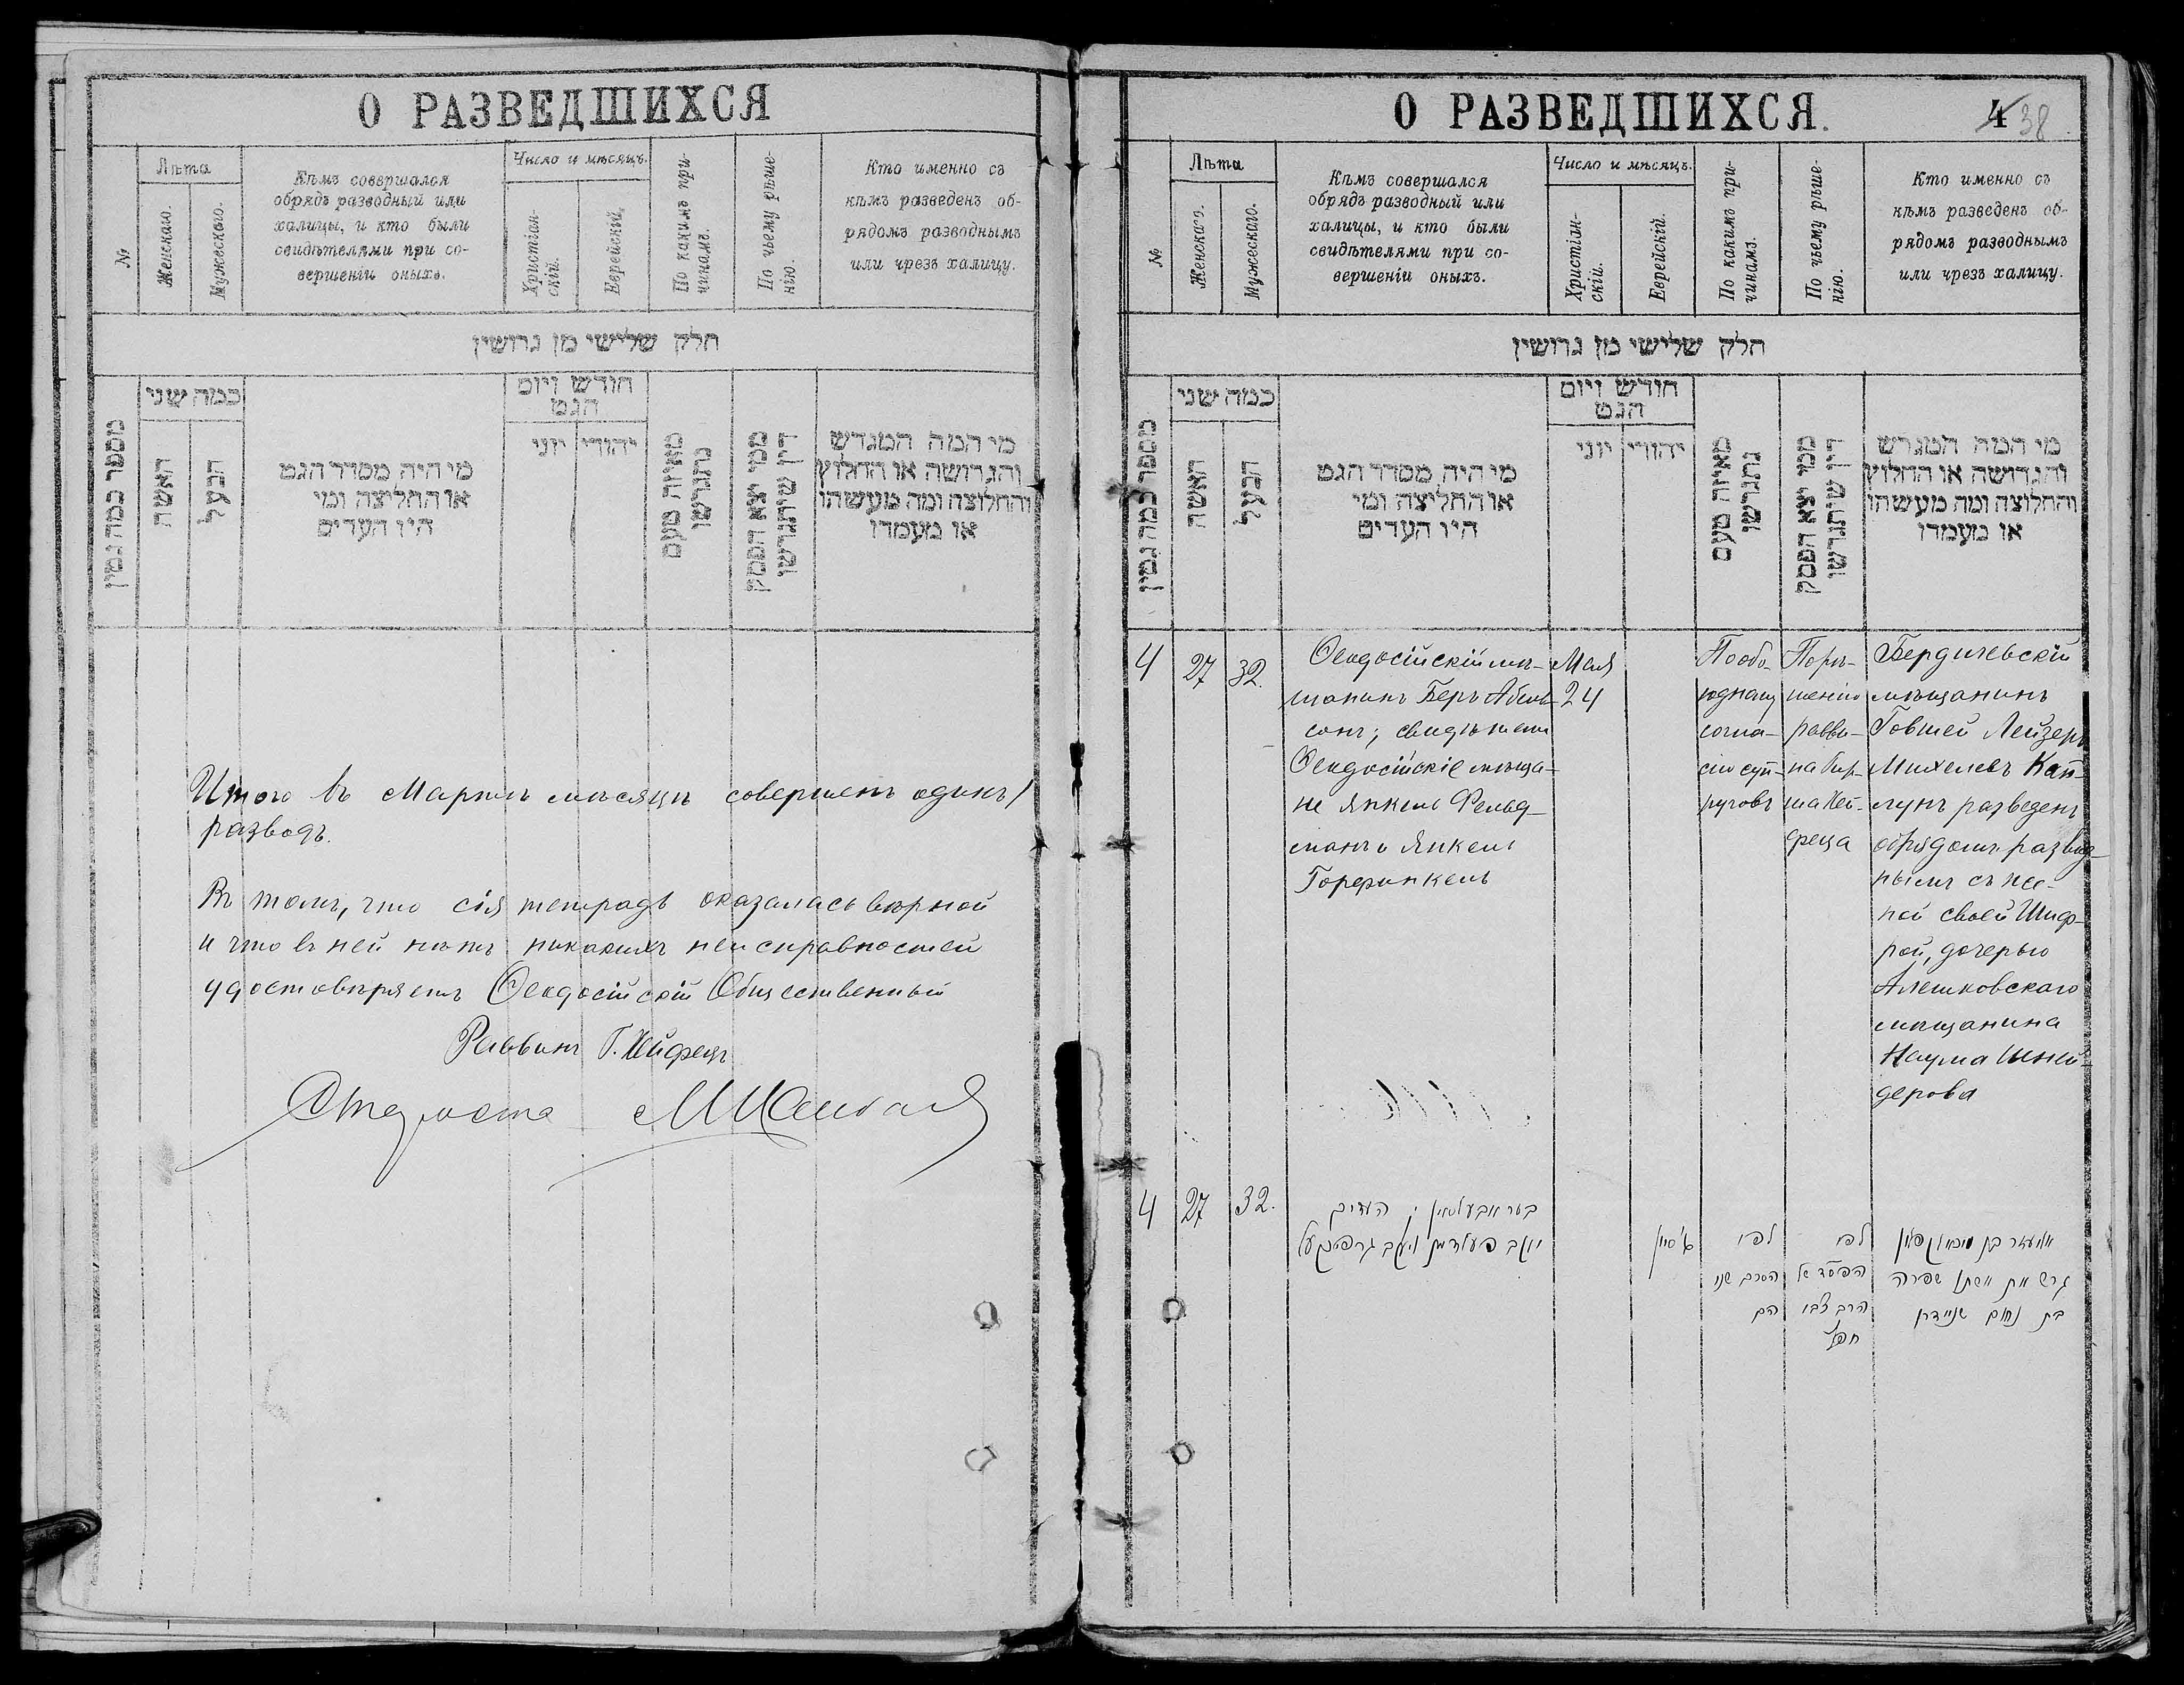 О РАЗВЕДШИХСЯ
№
Лѣта
Женскаго.
Мужескаго.
Кѣмъ совершался
обрядъ разводный или
халицы, и кто были
свидѣтелями при со-
вершеніи оныхъ.
Число и мѣсяцъ.
Христіан-
скій.
Еврейскій.
По какимъ при-
чинамъ.
По чьему рѣше-
нію.
Кто именно съ
кѣмъ разведенъ об-
рядомъ разводнымъ
или чрезъ халицу.
חלק שלישי מן גרושין
מספר כמה גטין
כמה שני
האשה
הבעל
מי היה מסדר הגט
או החליצה ומי
היו העדים
חודש ויום
הגט
יהודי
יוני
מאיזה טעם
נתגרשו
ממי יצא הפסק
דין שיתגרשו
מי המה המגרש
והגרושה או החלוץ
והחלוצה ומה מעשהו
או מעמדו
Итого въ Мартѣ мѣсяцѣ совершенъ одинъ /
разводъ.
Въ томъ, что сія тетрадь оказалась вѣрной
и что въ ней нѣтъ никакихъ неисправностей
удостовѣряетъ Ѳеодосійскій Общественный
Раввинъ Г. Хейфецъ
Староста
О РАЗВЕДШИХСЯ.
4 38
№
Лѣта
Женскаго.
Мужескаго.
Кѣмъ совершался
обрядъ разводный или
халицы, и кто были
свидѣтелями при со-
вершеніи оныхъ.
Число и мѣсяцъ.
Христіан-
скій.
Еврейскій.
По какимъ при-
чинамъ.
По чьему рѣше-
нію.
Кто именно съ
кѣмъ разведенъ об-
рядомъ разводнымъ
или чрезъ халицу.
חלק שלישי מן גרושין
מספר כמה גטין
כמה שני
האשה
הבעל
מי היה מסדר הגט
או החליצה ומי
היו העדים
חודש ויום
הגט
יהודי
יוני
מאיזה טעם
נתגרשו
ממי יצא הפסק
דין שיתגרשו
מי המה המגרש
והגרושה או החלוץ
והחלוצה ומה מעשהו
או מעמדו
4
27
32.
Ѳеодосійскій мѣ-
щанинъ Беръ Абель-
сонъ; свидѣтели
Ѳеодосійскіе мѣща-
не Янкель Фельд-
манъ и Янкель
Горфинкель
Мая
24
По обо-
юдному
согла-
сію суп-
руговъ
По рѣ-
шенію
равви-
на Гир-
ша Хей-
феца
Бердичевскій
мѣщанинъ
Говшей Лейзеръ
Михелевъ Кап-
лунъ разведенъ
обрядомъ развод-
нымъ съ же-
ной своей Шиф-
рой, дочерью
Алешковскаго
мѣщанина
Наума Шней-
дерова
4
27
32.
בער אבעלסאן ; העדים
יעקב פעלדמן ויעקב גרפינקעל
ט' סיון
לפי
הסכם שני
הם
לפי
הפס"ד של
הרב צבי
חפץ
גרש את אשתו שפרה
בת נחום שניידר